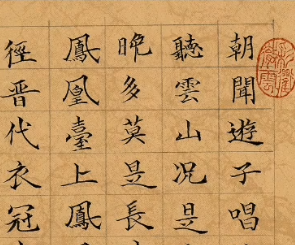 朝聞遊子唱
聽雲山況是
晚多莫是長
鳳凰臺上鳳
徑晉代衣冠